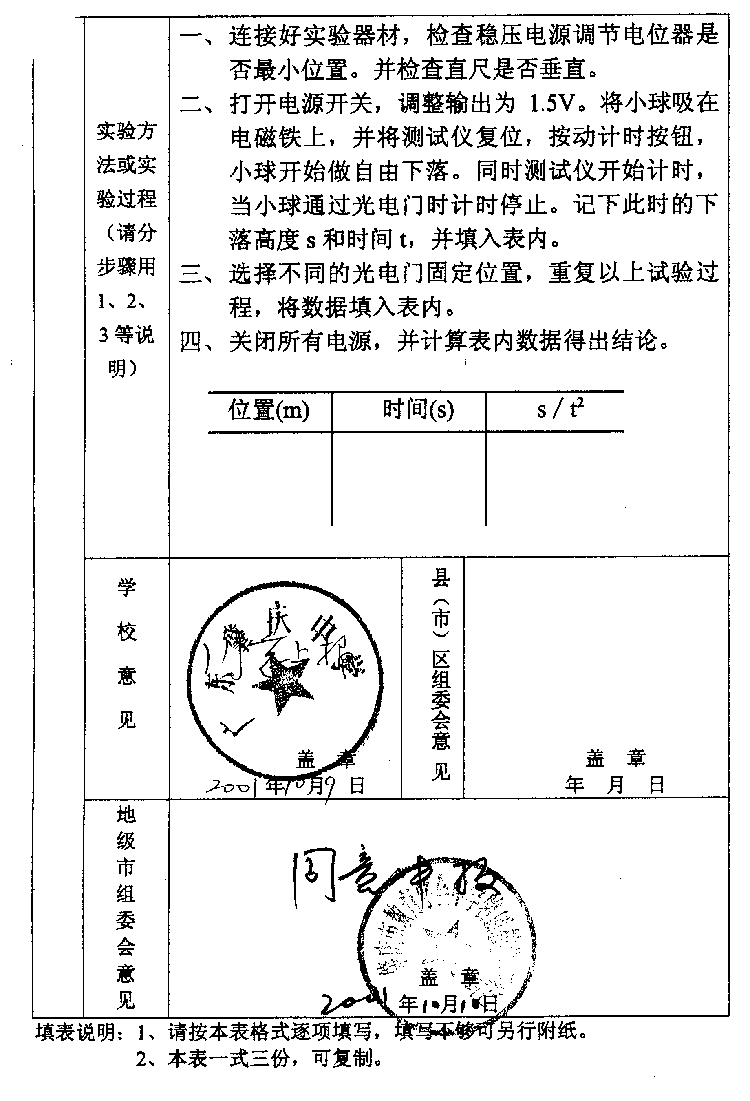 实验方
法或实
验过程
（请分
步骤用
1、2、
3等说
明）
一、连接好实验器材，检查稳压电源调节电位器是
否最小位置。并检查直尺是否垂直。
二、打开电源开关，调整输出为 1.5V。将小球吸在
电磁铁上，并将测试仪复位，按动计时按钮，
小球开始做自由下落。同时测试仪开始计时，
当小球通过光电门时计时停止。记下此时的下
落高度 s 和时间 t，并填入表内。
三、选择不同的光电门固定位置，重复以上试验过
程，将数据填入表内。
四、关闭所有电源，并计算表内数据得出结论。
位置(m) 时间(s) s / t²
学校意见
盖 章
2001年10月9日
县（市）区组委会意见
盖 章
年 月 日
地级市组委会意见
同意申报
盖 章
2001年10月10日
填表说明：1、请按本表格式逐项填写，填写不够可另行附纸。
2、本表一式三份，可复制。